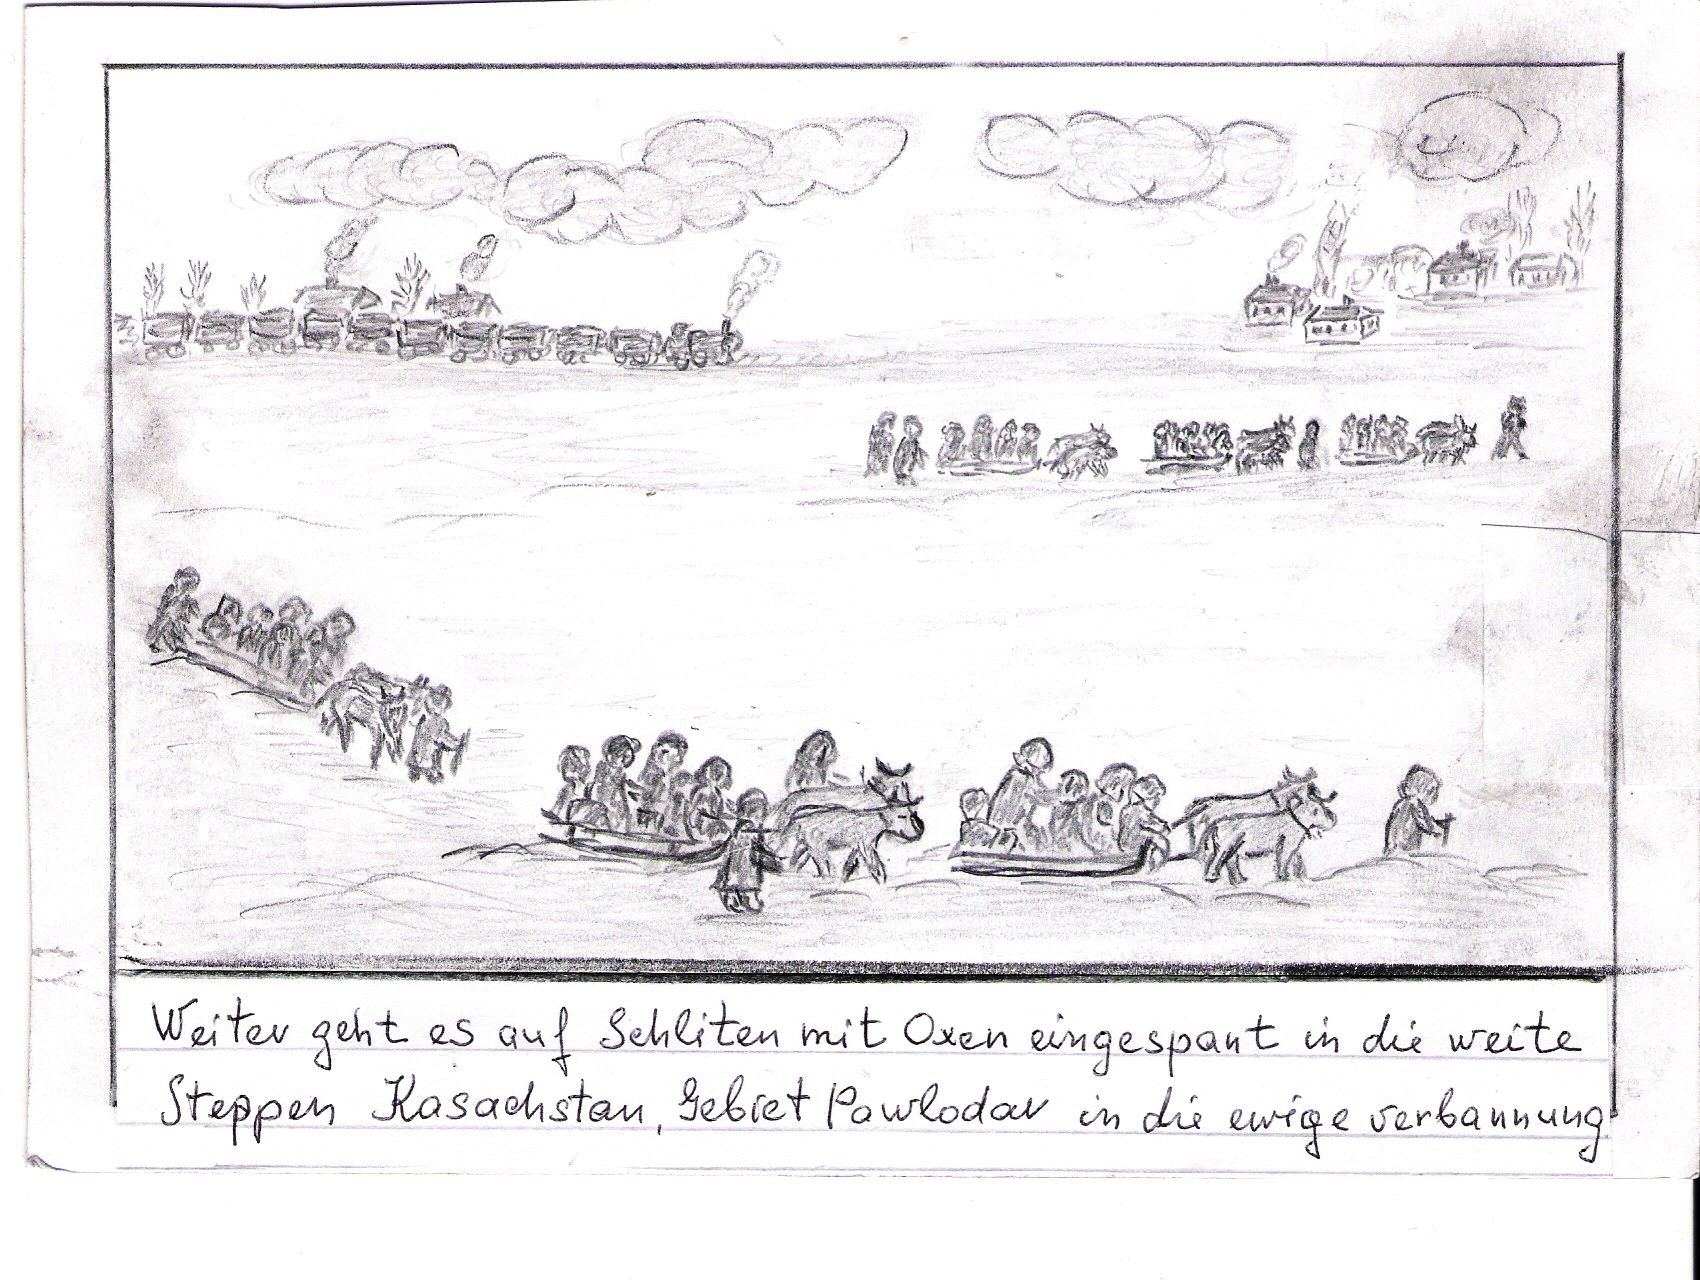 Weiter geht es auf Schliten mit Oxen eingespant in die weite
Steppen Kasachstan, Gebiet Pawlodar in die ewige verbannung